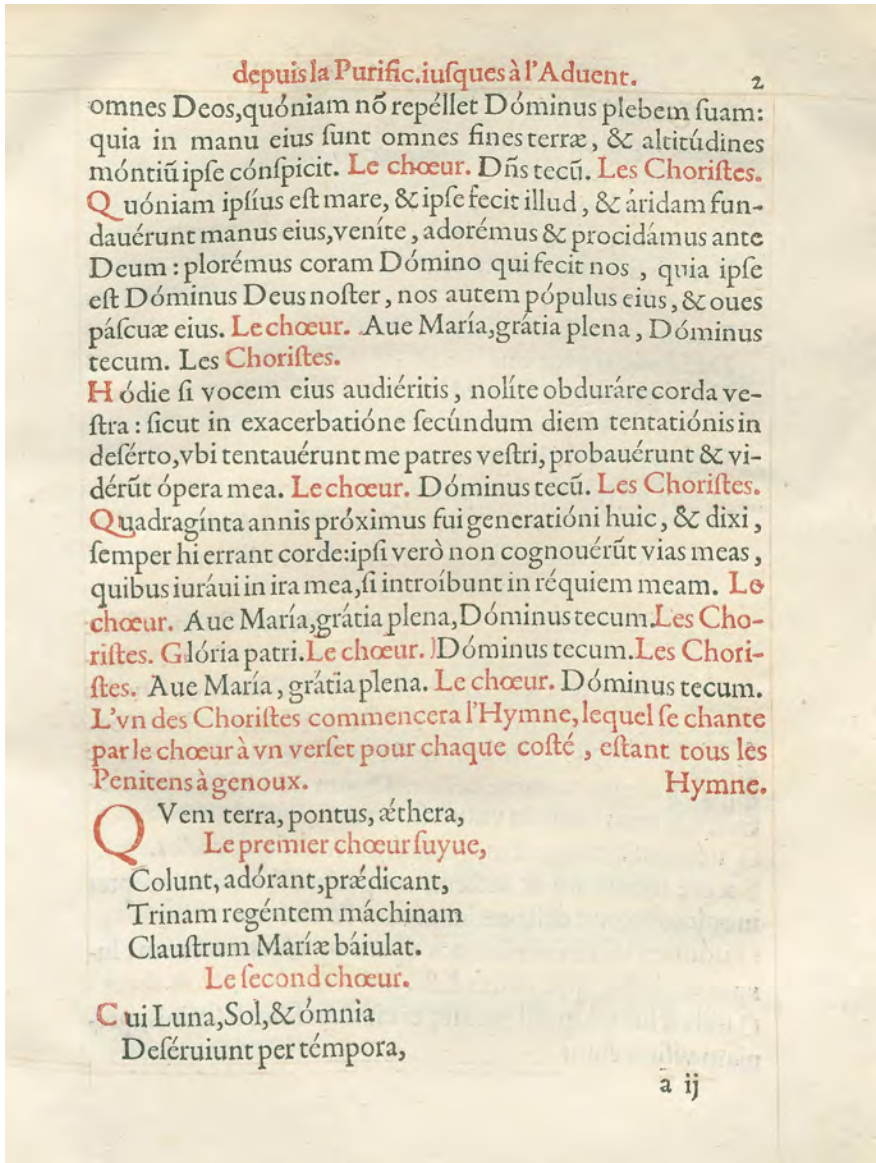 depuis la Purific.iuſques à l'Aduent. 2
omnes Deos,quóniam nõ repéllet Dóminus plebem ſuam:
quia in manu eius ſunt omnes fines terræ, & altitúdines
móntiũ ipſe cónſpicit. Le chœur. Dñs tecũ. Les Choriſtes.
Quóniam ipſíus eſt mare, & ipſe fecit illud, & áridam fun-
dauérunt manus eius,veníte, adorémus & procidámus ante
Deum : plorémus coram Dómino qui fecit nos, quia ipſe
eſt Dóminus Deus noſter, nos autem pópulus eius, & oues
páſcuæ eius. Le chœur. Aue María,grátia plena, Dóminus
tecum. Les Choriſtes.
Hódie ſi vocem eius audiéritis, nolíte obduráre corda ve-
ſtra : ſicut in exacerbatióne ſecúndum diem tentatiónis in
deſérto,vbi tentauérunt me patres veſtri, probauérunt & vi-
dérũt ópera mea. Le chœur. Dóminus tecũ. Les Choriſtes.
Quadragínta annis próximus fui generatióni huic, & dixi,
ſemper hi errant corde:ipſi verò non cognouérũt vias meas,
quibus iuráui in ira mea,ſi introíbunt in réquiem meam. Le
chœur. Aue María,grátia plena,Dóminus tecum.Les Cho-
riſtes. Glória patri.Le chœur. )Dóminus tecum.Les Chori-
ſtes. Aue María, grátia plena. Le chœur. Dóminus tecum.
L'vn des Choriſtes commencera l'Hymne, lequel ſe chante
par le chœur à vn verſet pour chaque coſté, eſtant tous les
Penitens à genoux. Hymne.
QVem terra, pontus, ǽthera,
Le premier chœur ſuyue,
Colunt, adórant,prǽdicant,
Trinam regéntem máchinam
Clauſtrum Maríæ báiulat.
Le ſecond chœur.
Cui Luna,Sol,& ómnia
Deſéruiunt per témpora,
a ij